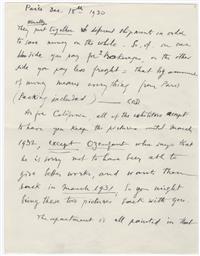 Paris Dec. 18th 1930
usually
They put together different shipments in order
to save money on the whole. So, if on one
side you pay for Packages, on the other
side you pay less freight, that by amount
of money means everything from Paris
(Packing included) — COD
As for California, all of the exhibitors accept
to have you keep the pictures until march
1932, except Ozenfant who says that
he is sorry not to have been able to
give better works, and wants them
back in march 1931. So you might
bring these two pictures back with you.
The apartment is all painted in that